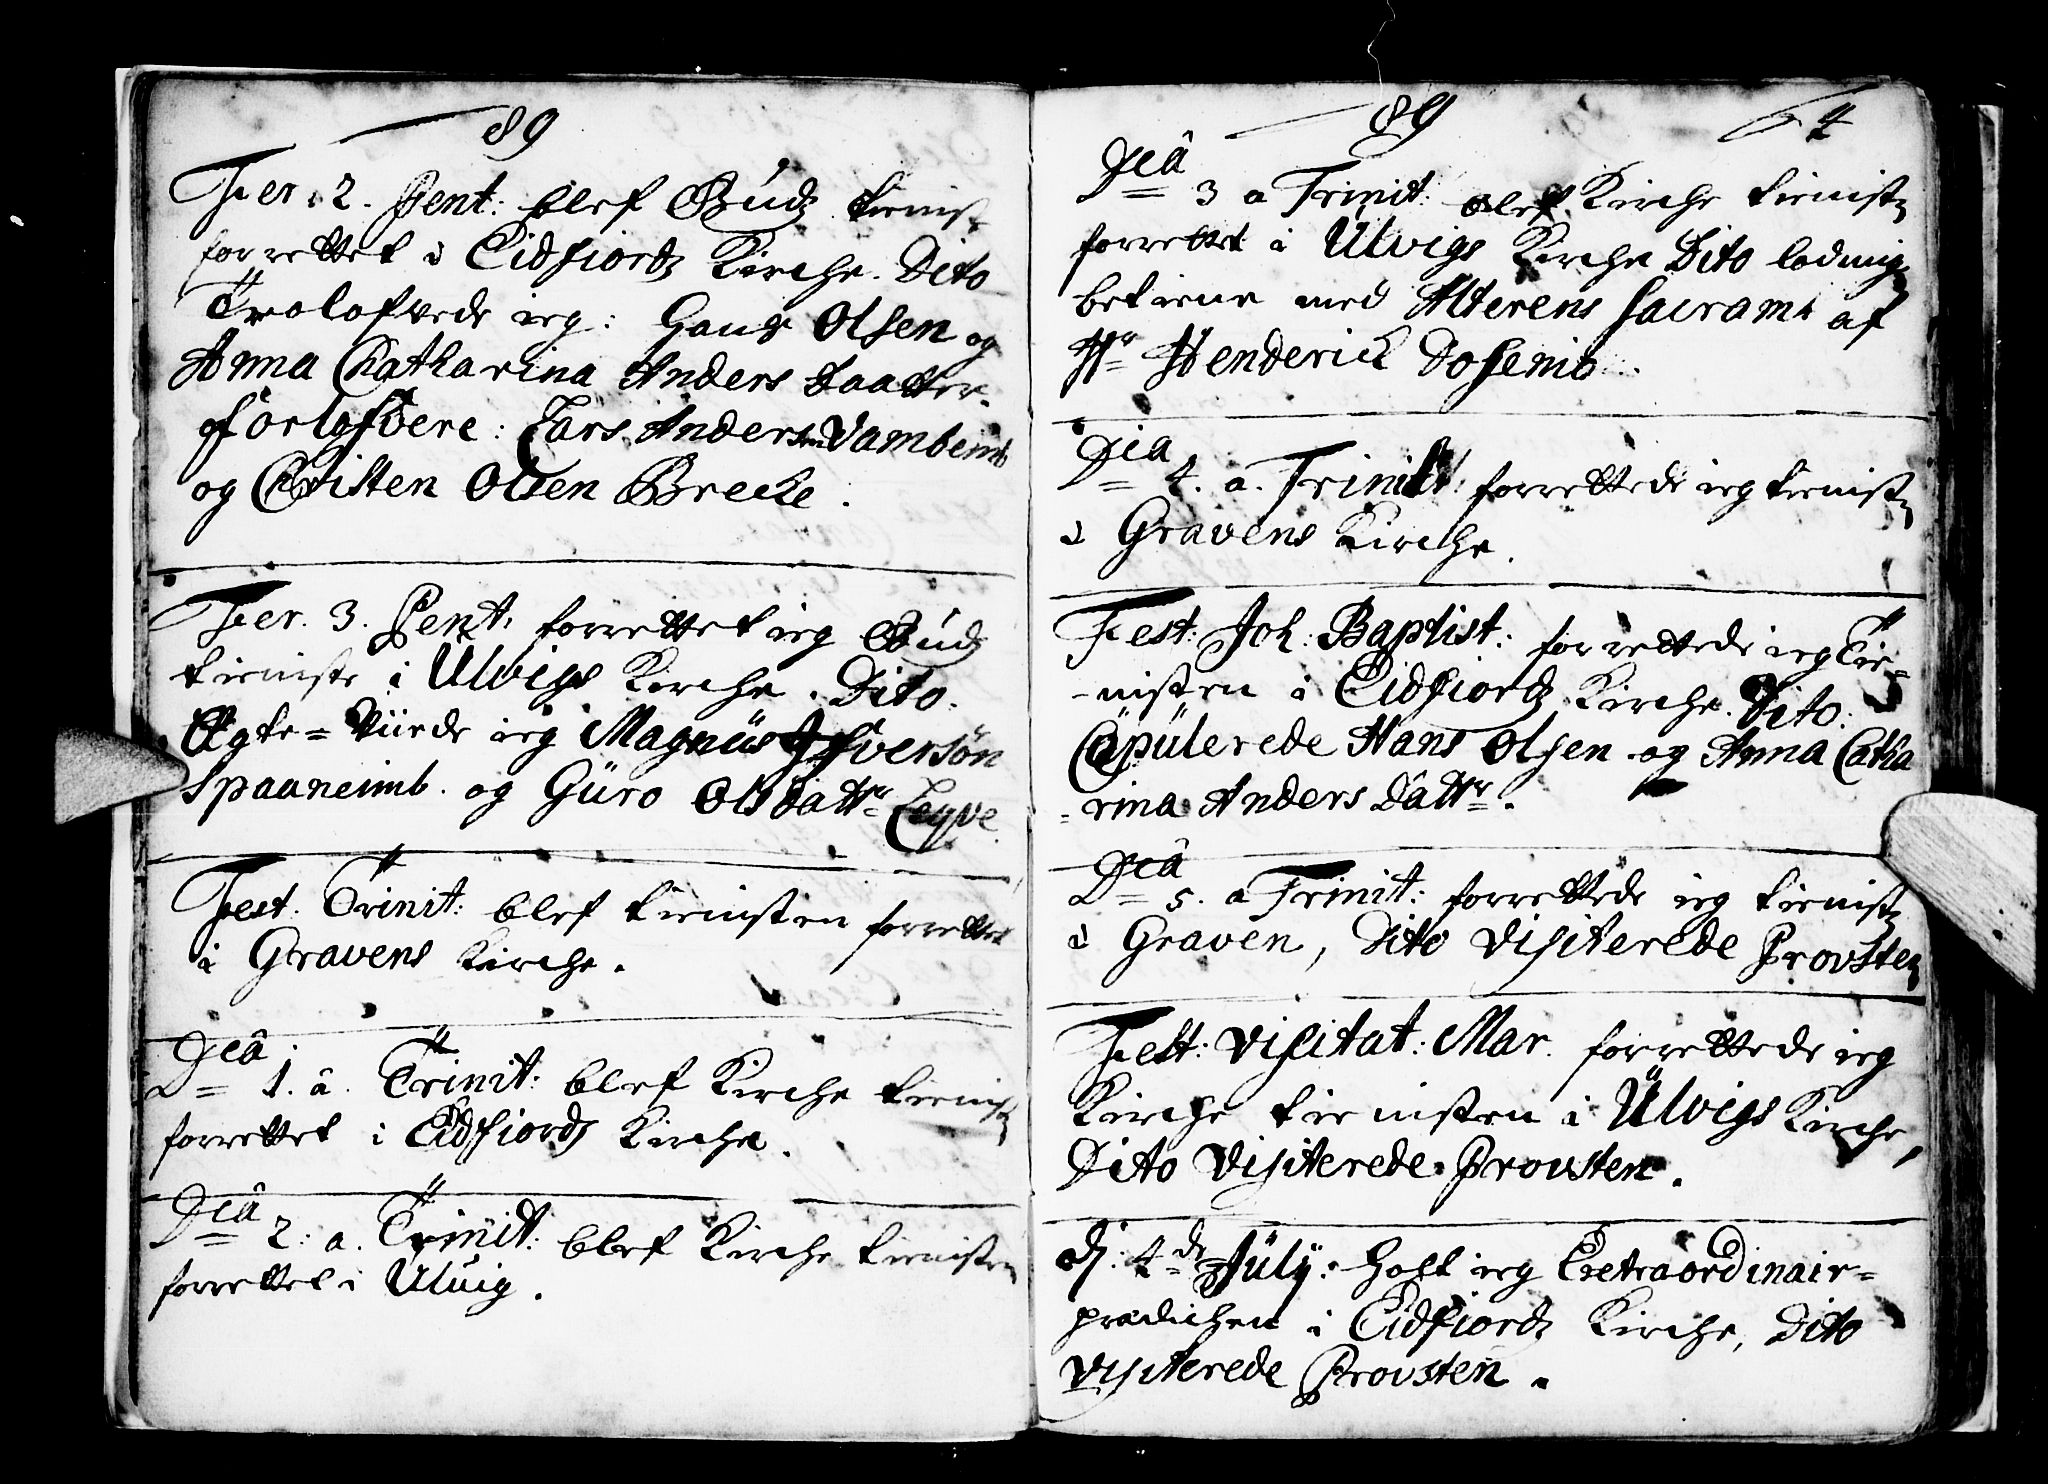 89
Fer: 2. Pent: blef Guds tienist
forrettet i Eidfiords Kirche. Dito
Trolofvede ieg: Hans Olsen og
Anna Chatharina Anders Daatter.
forlofvere: Lars Andersen Vambeimb
og Christen Olsen Brecke.
Fer. 3. Pent: forrettet ieg Guds
tieniste i Ulvigs Kirche. Dito.
Egte=Viede ieg Magnüs Ifversön
Spaaneimb. og Güro Olsdattr
Fest. Trinit: blef tienisten forrettet
i Gravens Kirche.
Dcâ 1. â. Trinit: blef Kirche tienist
forrettet i Eidfiords Kirche.
Dcâ 2: a. Trinit: blef Kirche tienisten
forrettet i Ulvig.
89
Dcâ 3 a Trinit: blef Kirche tienisten
forrettet i Ülvigs Kirche Dito
betiene med Alterens Sacram: af
Hr Henderick
Dca 4. a. Trinit: forrettede ieg tienisten
i Gravens Kirche.
Fest: Joh: Baptist: forrettede ieg Tie=
=nisten i Eidfiords Kirche. Dito:
Cöpülerede Hans Olsen og Anna Catha
=rina Anders Dattr.
Dcâ 5. a Trinit: forrettede ieg tienisten
i Graven, Dito Visiterede Provsten
Fest: Visitat: Mar. forrettede ieg
Kirche tienisten i Ülvigs Kirche,
Dito Visiterede Provsten.
dj: 4de Jülÿ: Holt ieg Extraordinair=
prædichen i Eidfiords Kirche, Dito
Visiterede Provsten.